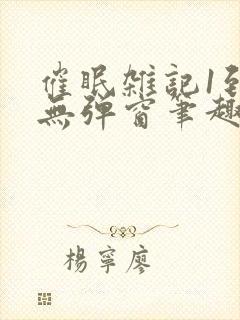 催眠雑記1至
無彈窗筆趣
楊寧廖